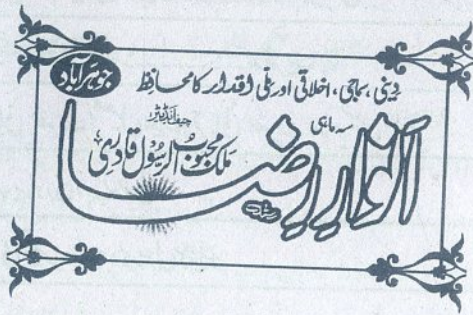 جوہرآباد
دینی، سماجی، اخلاقی اور ملی اقدار کا محافظ
سہ ماہی
چیف ایڈیٹر
ملک محبوب الرسول قادری
انوارِ رضا